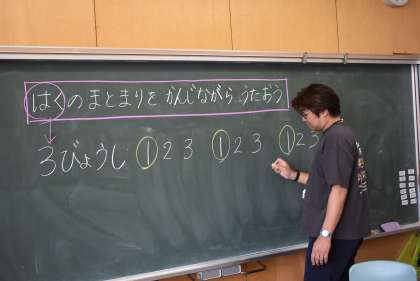 はくのまとまりを かんじながら うたおう
3びょうし 1 2 3 1 2 3 1 2 3